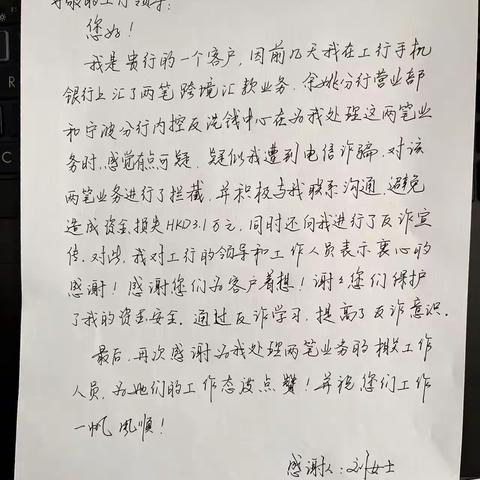 尊敬的工行领导:
您好!
我是贵行的一个客户,因前几天我在工行手机
银行上汇了两笔跨境汇款业务.余姚分行营业部
和宁波分行内控反洗钱中心在为我处理这两笔业
务时,感觉有点可疑.疑似我遭到电信诈骗.对该
两笔业务进行了拦截.并积极与我联系沟通.避免
造成资金损失HKD3.1万元.同时还向我进行了反诈宣
传.对此,我对工行的领导和工作人员表示衷心的
感谢!感谢您们为客户着想!谢谢您们保护
了我的资金安全.通过反诈学习.提高了反诈意识.
最后.再次感谢为我处理两笔业务的相关工作
人员.为她们的工作态度点赞!并祝您们工作
一帆风顺!
感谢人:刘女士